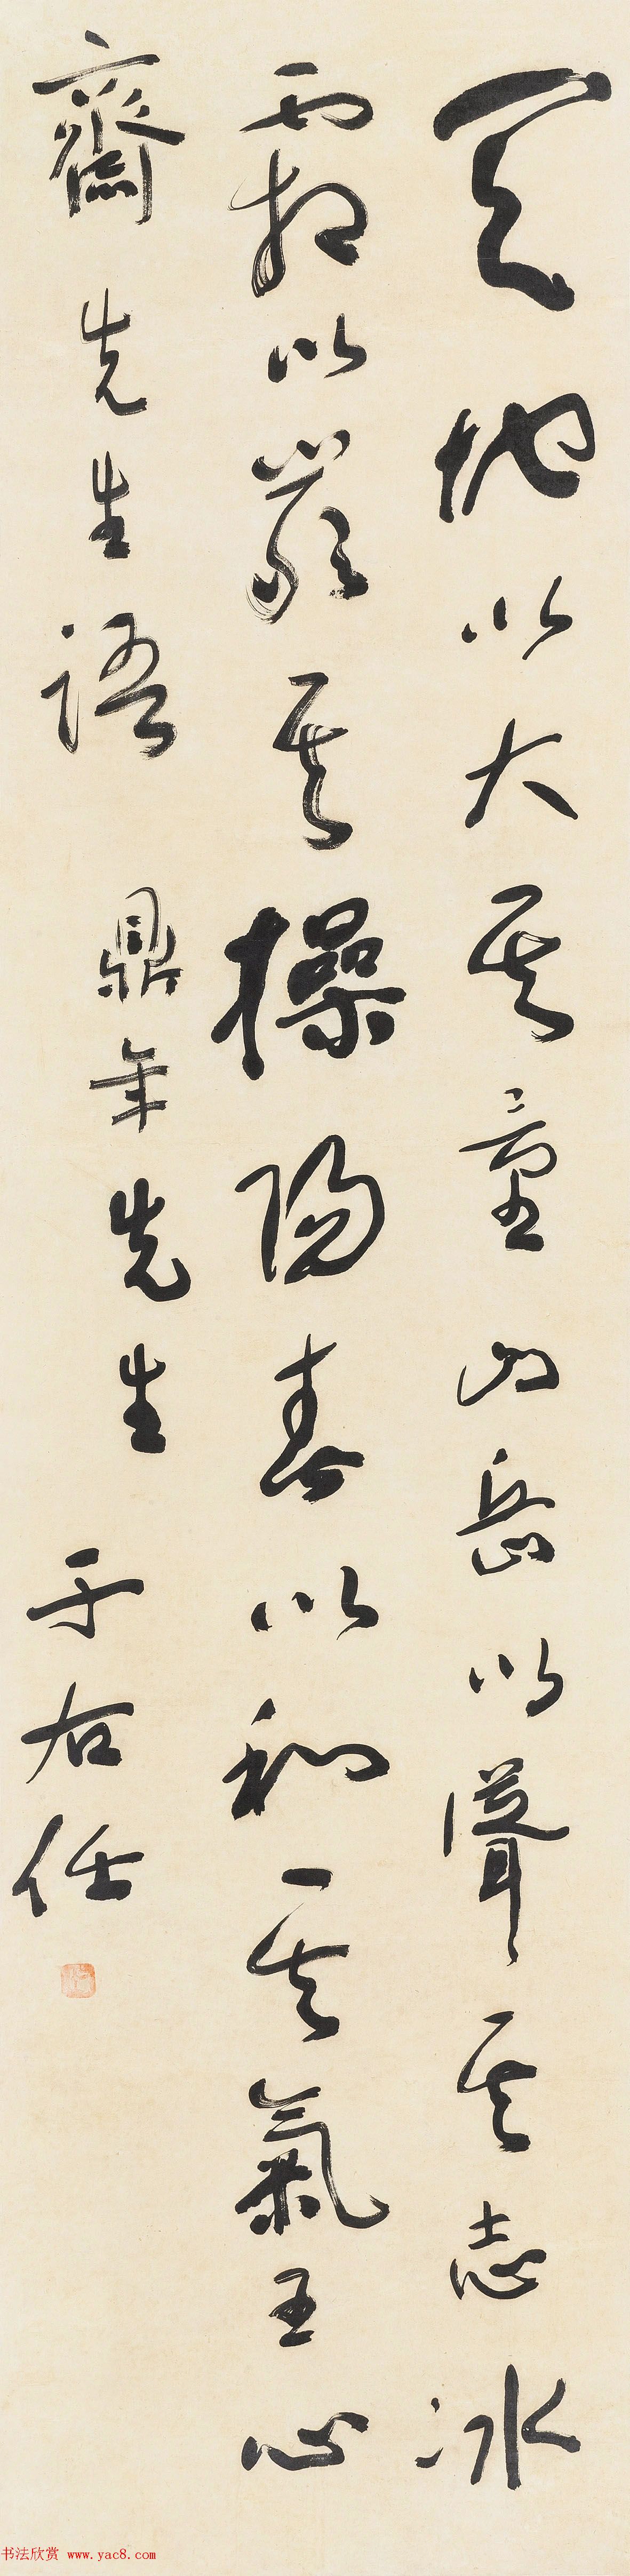 天地以大其量山岳以聳其志冰
霜以嚴其操陽春以和其氣王心
齋先生語 鼎年先生 于右任
书法欣赏 www.yac8.com